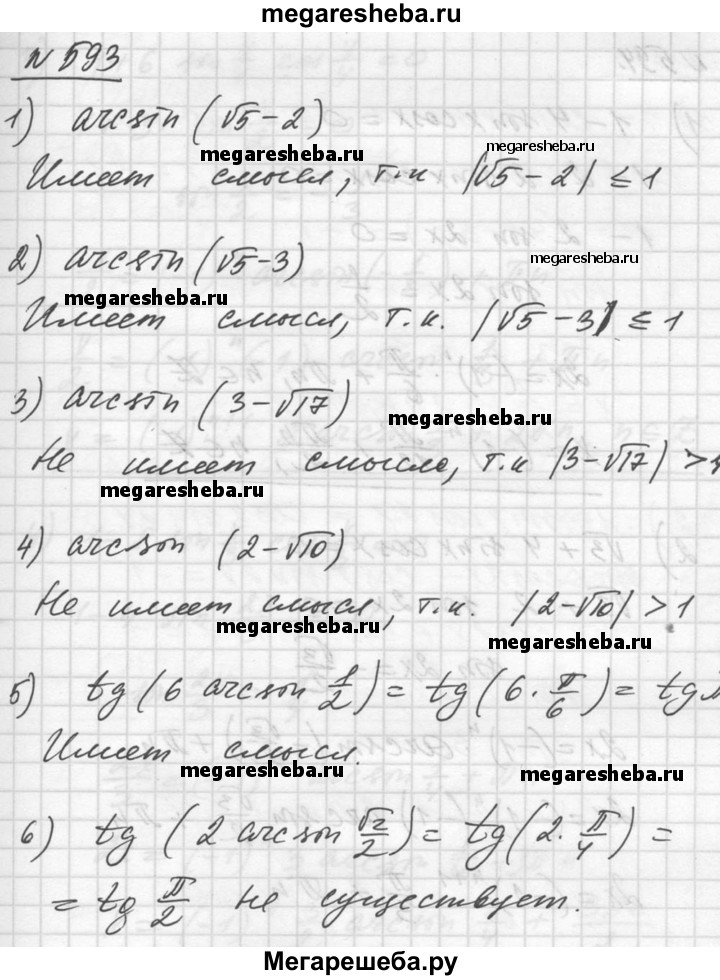 megaresheba.ru
№ 593
1) arcsin (√5 - 2)
megaresheba.ru
megaresheba.ru
Имеет смысл, т.к |√5 - 2| ≤ 1
2) arcsin (√5 - 3)
megaresheba.ru
megaresheba.ru
Имеет смысл, т.к. |√5 - 3| ≤ 1
3) arcsin (3 - √17)
megaresheba.ru
Не имеет смысла, т.к |3 - √17| > 1
megaresheba.ru
4) arcsin (2 - √10)
Не имеет смысл, т.к. |2 - √10| > 1
megaresheba.ru
megaresheba.ru
5) tg (6 arcsin 1/2) = tg (6 · π/6) = tg π
Имеет смысл.
megaresheba.ru
megaresheba.ru
6) tg (2 arcsin √2/2) = tg (2 · π/4) =
= tg π/2 не существует.
Мегарешеба.ру